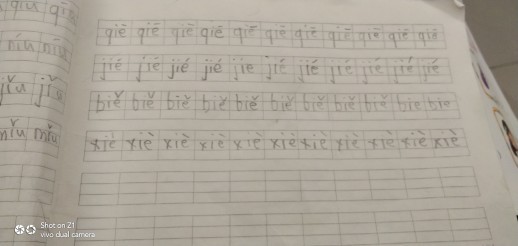 qiē qiē qiē qiē qiē qiē qiē qiē qiē qiē qiē
jié jié jié jié jié jié jié jié jié jié jié
biě biě biě biě biě biě biě biě biě biě biě
xiè xiè xiè xiè xiè xiè xiè xiè xiè xiè xiè
Shot on Z1
vivo dual camera